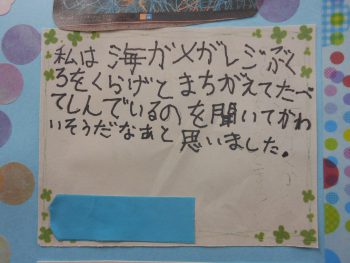 私は海がメがレジぶく
ろをくらげとまちがえてたべ
てしんでいるのを聞いてかわ
いそうだなあと思いました。